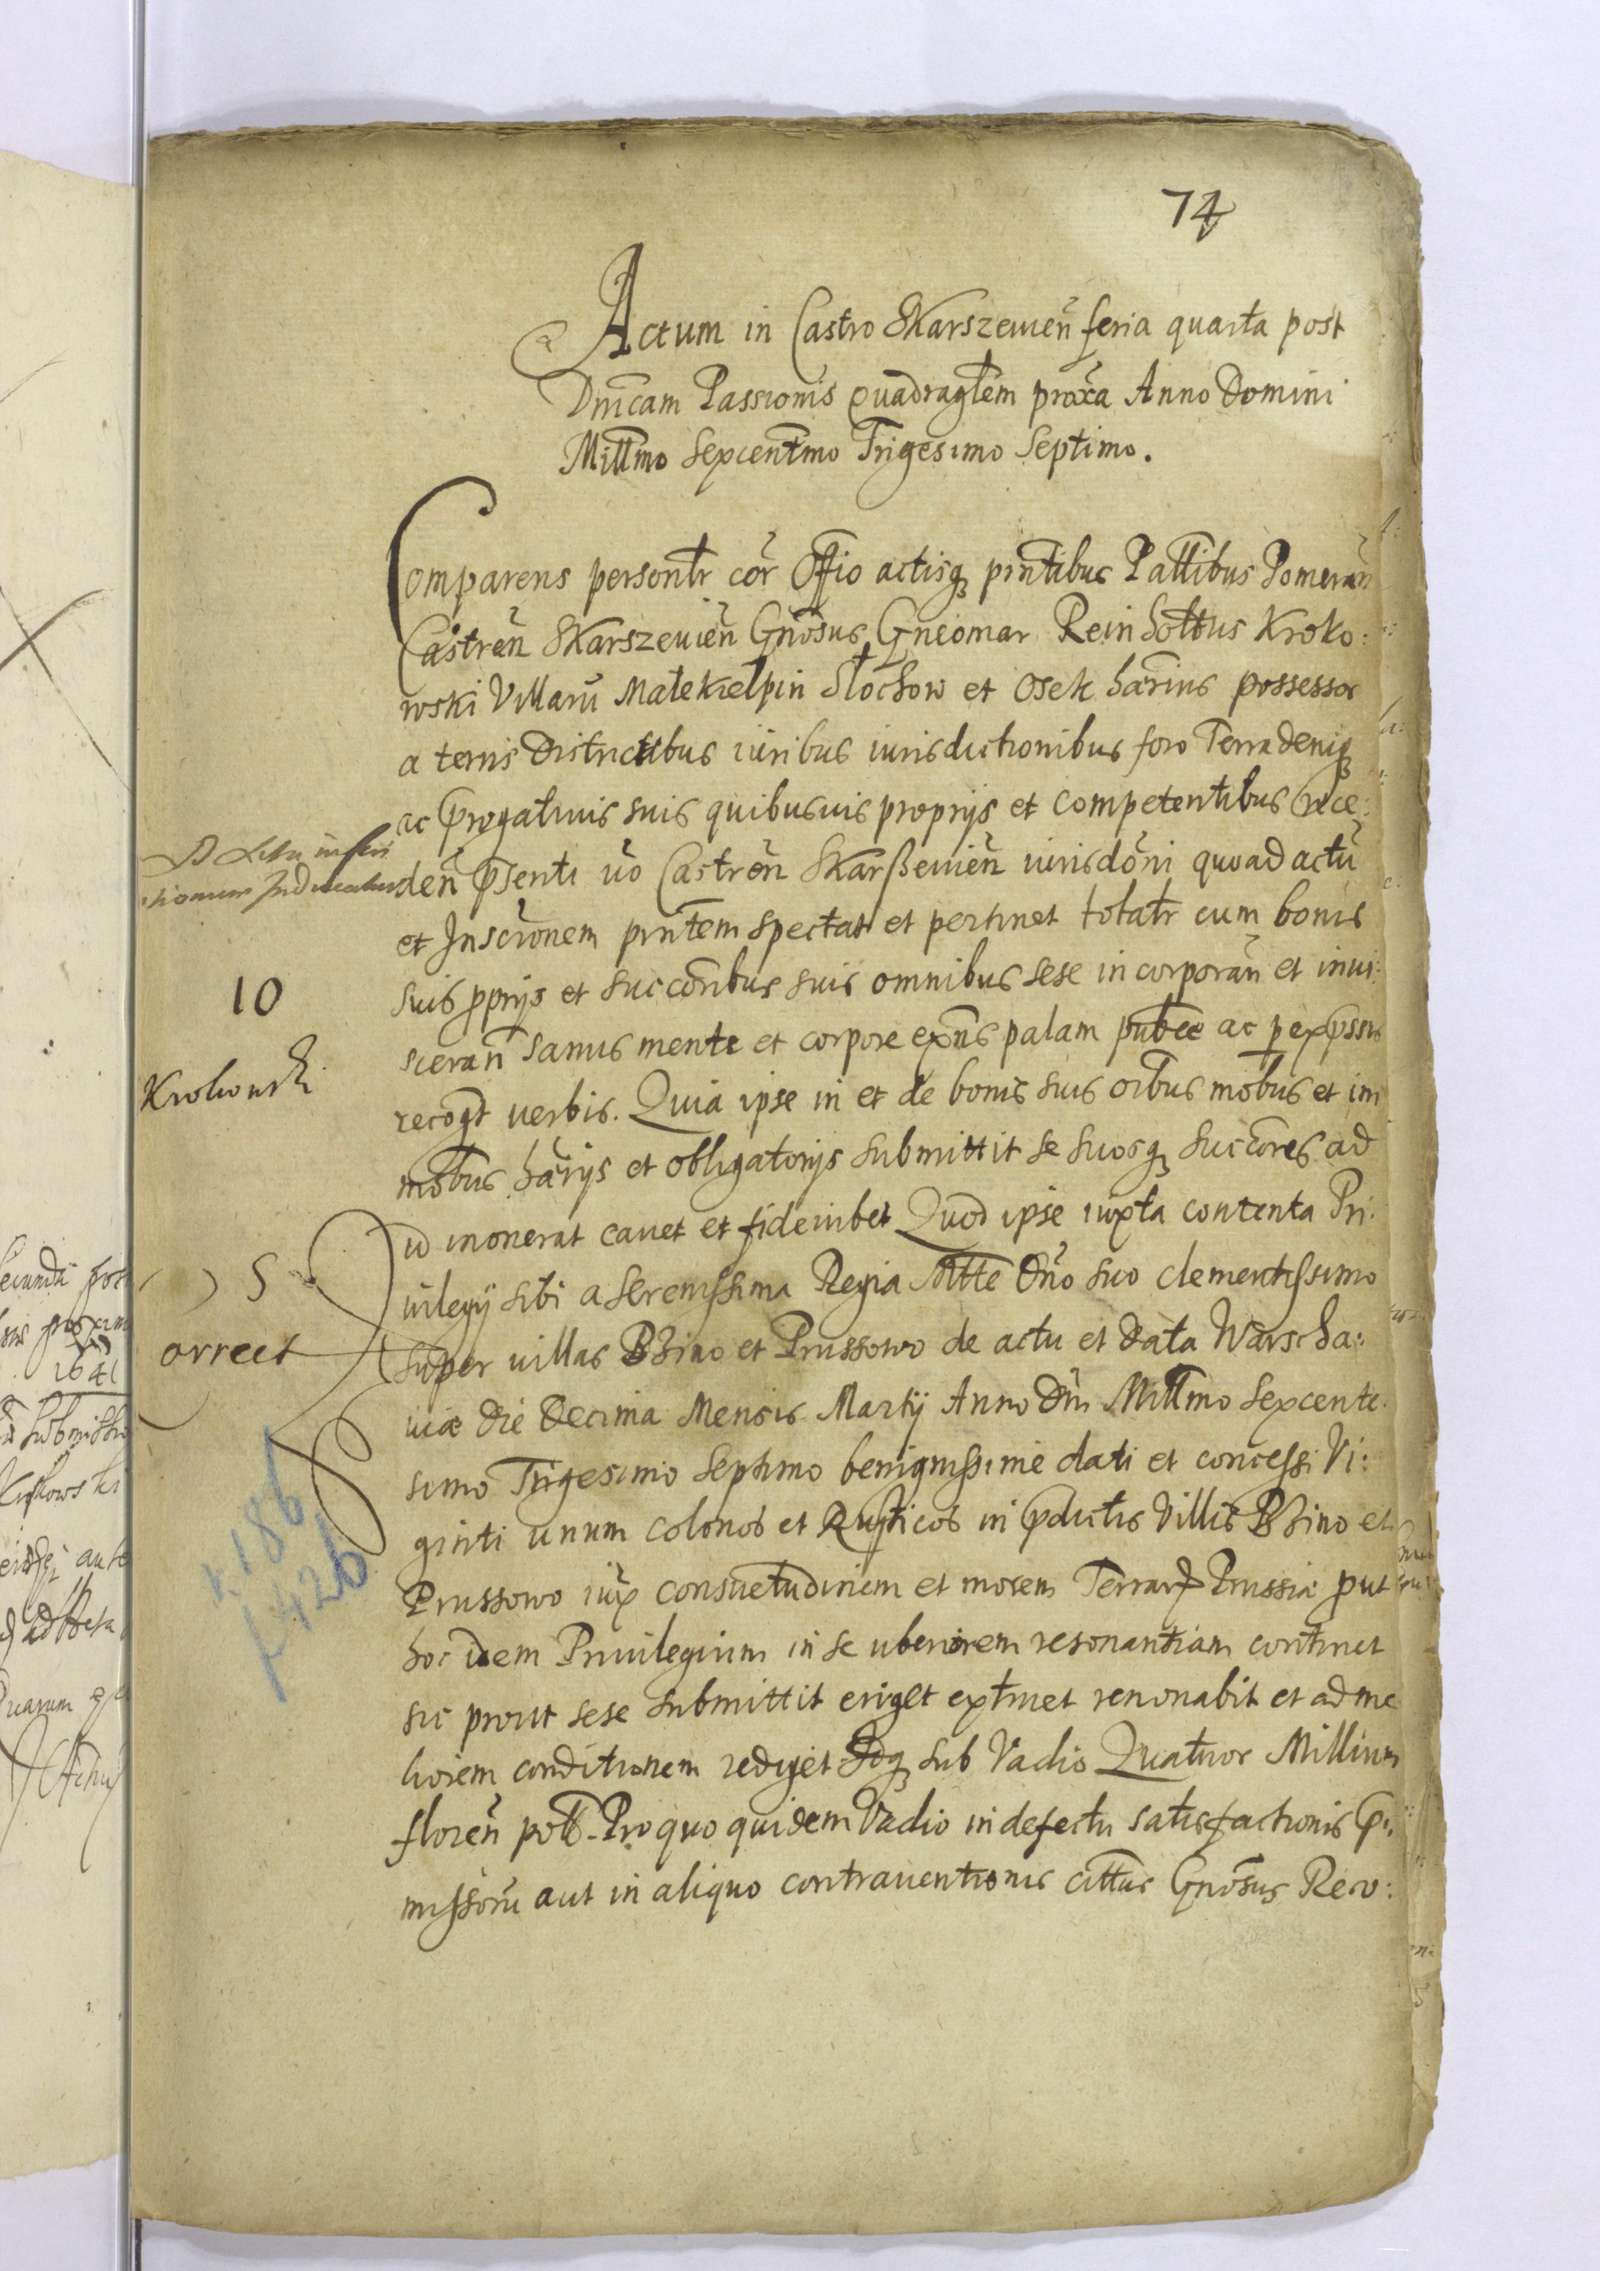 74
Actum in Castro Skarszewień feria quarta post
Dnicam Passionis quadragłem proxa Anno Domini
Millmo Sexcentmo Trigesimo Septimo.
Comparens personlr cor Offio actisq pnntibus Pallibus Pomeran
Castren Skarszewien Gnosus Gneomar Reinholtus Kroko:
wski Villaru Małekiełpin Słochow et Osek harius possessor
a terris Districtibus iuribus iurisdictionibus foro Terra deniq
ac prrogativis suis quibusuis proprys et competentibus rece:
den psenti vo Castren Skarßewien iurisdoni quoad actu
et Inscronem pnntem spectat et pertinet totalr cum bonis
suis pprijs et succoribus suis omnibus sese incorporan et inui:
sceran sanus mente et corpore exns palam publce ac p expssis
recogt verbis. Quia ipse in et de bonis suis oibus mobus et im
mobus harijs et obligatorijs submittit se suosq succores ad
id inonerat cauet et fideiubet Quod ipse iuxta contenta Pri:
uilegij sibi a serenissima Regia Mtte Dno suo clementissimo
super uillas Bzino et Prussowo de actu et data Warscha:
uiæ die Decima Mensis Martij Anno Dni Millmo Sexcente
simo Trigesimo Septimo benignissime dati et concessi Vi:
ginti unum colonos et Rusticos in pdictis Villis Bzino et
Prussowo iux consuetudinem et morem Terrar Prussiæ put
hoc idem Priuilegium in se uberiorem resonantiam continet
sic prout sese submittit eriget extruet renouabit et ad me
liorem conditionem rediget Idq sub Vadio Quatuor Millium
floren pol. Pro quo quidem Vadio in defectu satisfactionis p:
missoru aut in aliquo contrauentionis cittus Gnosus Reco:
10
Krokowski
S
orrect
k 186
f 426
1641